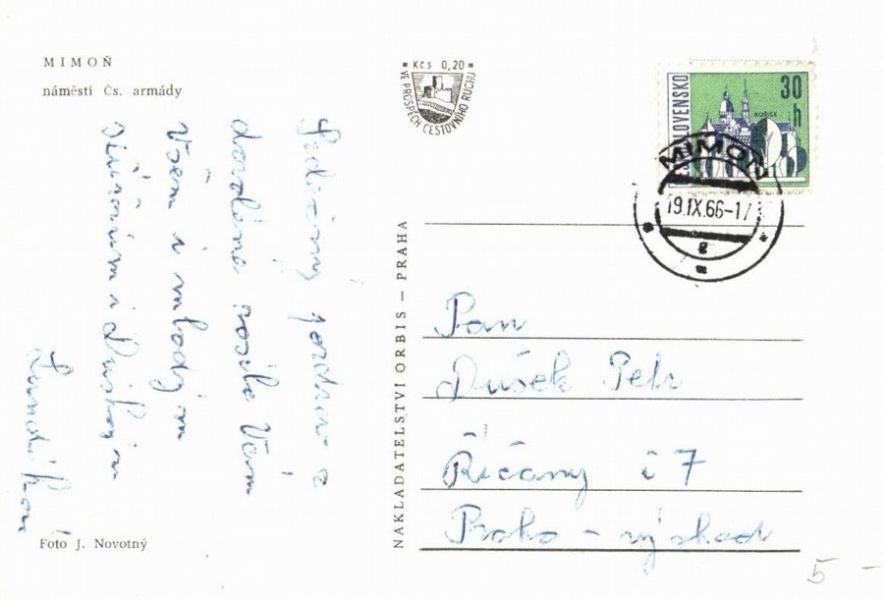 MIMOŇ
náměstí Čs. armády
Kčs 0,20
VE PROSPĚCH CESTOVNÍHO RUCHU
SLOVENSKO
30
h
KOŠICE
MIMOŇ
19.IX.66-17
2
Srdečný pozdrav z
dovolené posílá Vám
Všem i mladým
i
NAKLADATELSTVÍ ORBIS – PRAHA
Pan
Dušek Petr
Říčany č 7
Praha - východ
Foto J. Novotný
5 -